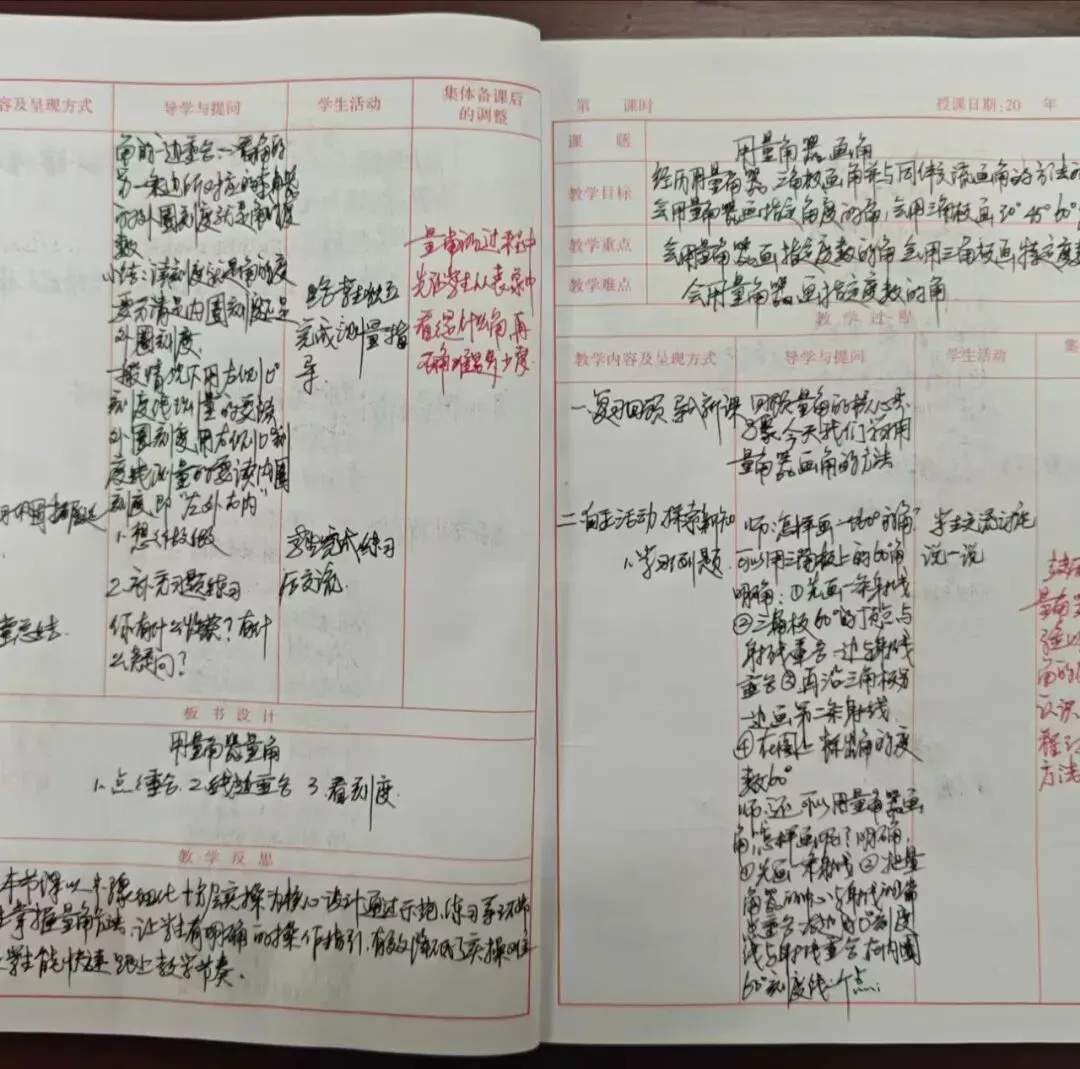 容及呈现方式 导学与提问 学生活动 集体备课后的调整
角的一边重合.一看角的
另一条边所对应的
外圈刻度就是角的度
数
小结:读刻度就是角的度
要分清是内圈刻度还是
外圈刻度
一般情况下用左侧0°
刻度线测量的要读
外圈刻度用右侧0°刻
度线测量的要读内圈
刻度即"左外右内"
1.想想做做
2.补充习题练习
你有什么收获?有什
么疑问?
学生独立
完成测量指
导
学生完成练习
后交流.
量角的过程中
先让学生从表象中
看是什么角再
确定是多少度.
堂总结.
板书设计
用量角器量角
1.点重合.2.线边重合 3.看刻度.
教学反思
本节课以步骤细化 实操为核心设计通过示范、练习等环节
掌握量角方法.让学生有明确的操作指引,有效降低了实操难
学生能快速跟上教学节奏.
第 课时 授课日期:20 年
课题 用量角器画角
教学目标 经历用量角器、三角板画角并与同伴交流画角的方法的
会用量角器画指定角度的角,会用三角板画30°45°60°
教学重点 会用量角器画指定度数的角 会用三角板画特定度数
教学难点 会用量角器画指定度数的角
教学过程
教学内容及呈现方式 导学与提问 学生活动 集
一.复习回顾 导入新课 回顾量角的核心步
骤.今天我们学习用
量角器画角的方法
二.自主活动 探索新知 师:怎样画一个60°的角? 学生交流讨论
1.学习例题. 可以用三角板上的60°角 说一说
明确:①先画一条射线
②三角板60°的顶点与
射线重合一边与射线
重合③再沿三角板另
一边画第二条射线.
④在图上标出角的度
数60°
师:还可以用量角器画
角,怎样画呢?明确,
①先画一条射线②把量
角器的中心与射线的端
点重合 0°刻度
线与射线重合在内圈
60°刻度线 个点;
量角器
角的
认识
程
方法